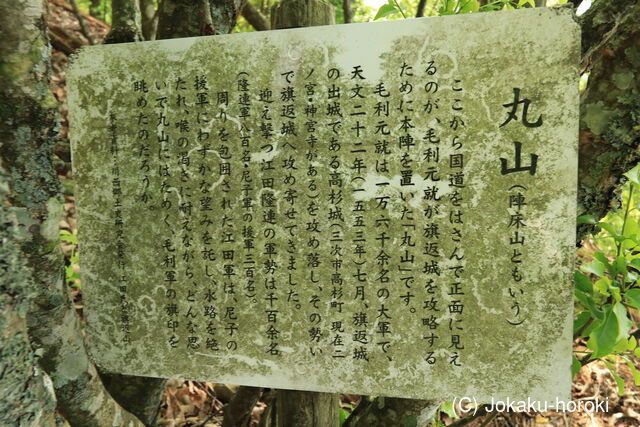 丸山(陣床山ともいう)
ここから国道をはさんで正面に見え
るのが、毛利元就が旗返城を攻略する
ために本陣を置いた「丸山」です。
毛利元就は、一万六千余名の大軍で、
天文二十二年(一五五三年)七月、旗返城
の出城である高杉城(三次市高杉町 現在二
ノ宮・神宮寺がある)を攻め落し、その勢い
で旗返城へ攻め寄せてきました。
迎え撃つ江田隆連の軍勢は千百余名
(隆連軍八百名・尼子軍の援軍三百名)。
周りを包囲された江田軍は、尼子の
援軍にわずかな望みを託し、水路を絶
たれ、喉の渇きに耐えながら、どんな思
いで丸山にはためく、毛利軍の旗印を
眺めたのだろうか。
(C) Jokaku-horoki